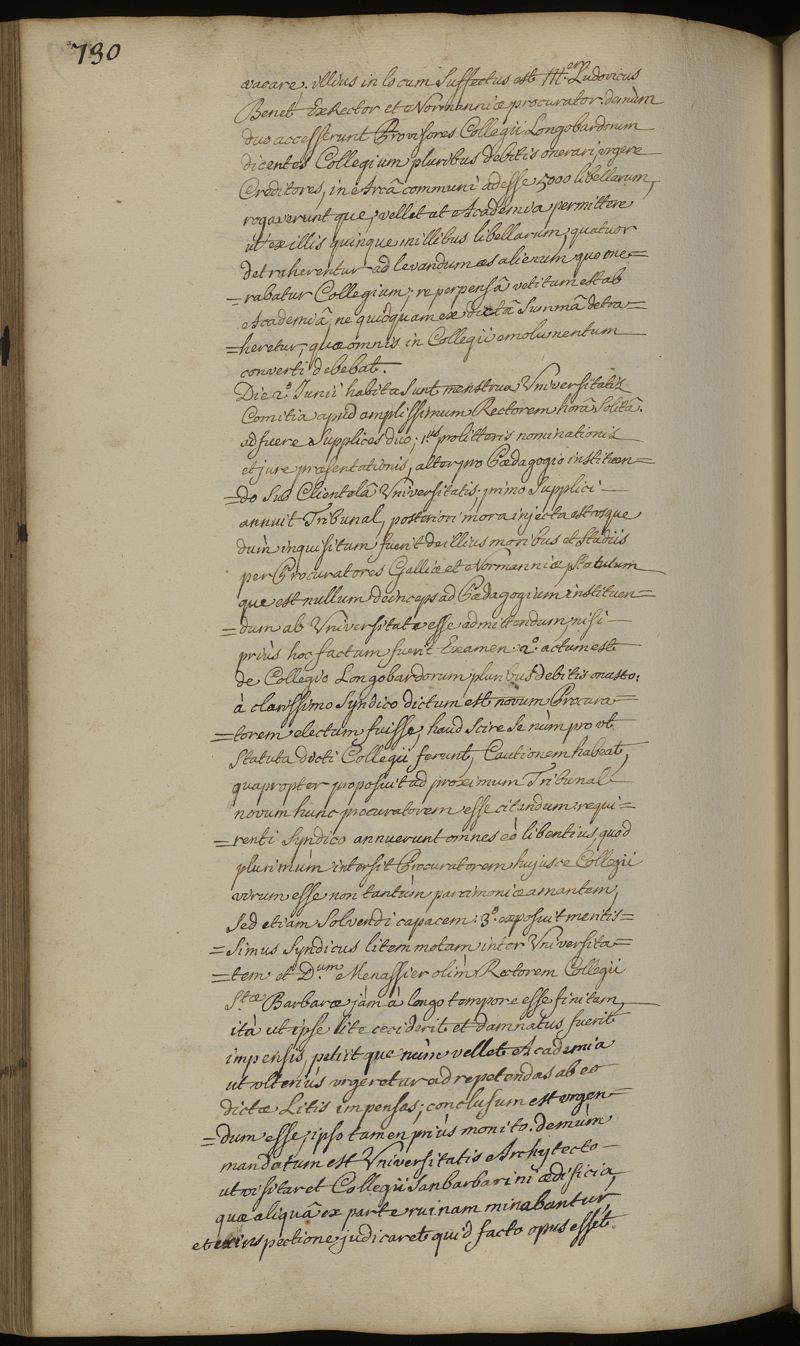 730
vacare. illius in locum suffectus est M.er Ludovicus
Benet ExRector et Normanniæ procurator. demùm
duo accesserunt Provisores Collegii Longobardorum
dicentes Collegium pluribus debitis onerari, urgere
Creditores, in Arcâ communi adesse 5000 libellarum,
rogaverunt que, vellet ut Academia permittere
ut ex illis quinque millibus libellarum, quatuor
detraherentur ad levandum æs alienum, quo one=
=rabatur Collegium; re perpensâ vetitum est ab
Academiâ, ne quidquam ex dictâ summâ detra=
=heretur, quæ omnis in Collegii emolumentum
converti debebat.
Die 2.a Junii habita sunt menstrua Universitatis
Comitia apud amplissimum Rectorem horâ solitâ.
adfuere supplices duo; 1.us pro litteris nominationis
et jure præsentationis, alter pro Pædagogio instituen=
=do sub Clientelâ Universitatis; primo supplici
annuit Tribunal, posteriori mora injecta est usque
dum inquisitum fuerit de illius moribus et studiis
per Procuratores Galliæ et Normanniæ, statutum
que est nullum deinceps ad Pædagogium instituen=
=dum ab Universitate esse admittendum, nisi
priùs hoc factum fuerit Examen. 2.o actum est
de Collegio Longobardorum pluribus debitis onusto:
à clarissimo Syndico dictum est novum Procura=
=torem electum fuisse, haud scire se nùm pro ut
statuta dicti Collegii ferunt, Cautionem habeat,
quapropter proposuit ad proximum Tribunal
novum hunc procuratorem esse citandum: requi=
=renti Syndico annuerunt omnes eò libentius quod
plurimùm intersit Procuratorem hujusce Collegii
virum esse non tantùm parcimoniæ amantem,
sed etiam solvendi capacem: 3.o exposuit meritis=
=simus Syndicus litem motam inter Universita=
=tem et D.um Menassier olim Rectorem Collegii
S.tæ Barbaræ jàm à longo tempore esse finitam,
ità ut ipse lite ceciderit et damnatus fuerit
impensis, petiit que nùm vellet Academia
ut ulteriùs urgeretur ad repetendas ab eo
dictæ Litis impensas; conclusum est urgen=
=dum esse, ipso tamen priùs monito. demùm
mandatum est Universitatis Architecto
ut visitaret Collegii Sanbarbarini ædificia,
quæ aliquâ ex parte ruinam minabantur,
et ex inspectione judicaret quid facto opus esset.